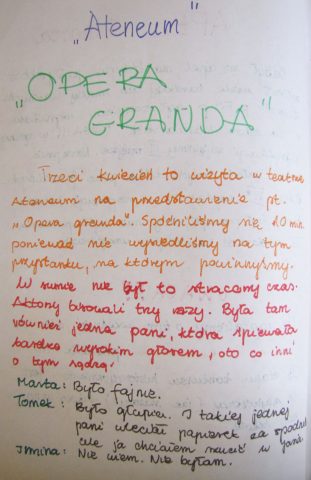 „Ateneum"
„OPERA
GRANDA"
Trzeci kwiecień to wizyta w teatrze
Ateneum na przedstawienie pt.
„Opera granda". Spóźniliśmy się 10 min.
ponieważ nie wysiedliśmy na tym
przystanku, na którym powinnyśmy.
W sumie nie był to stracony czas.
Aktorzy bisowali trzy razy. Była tam
również jedna pani, która śpiewała
bardzo wysokim głosem, oto co inni
o tym sądzą:
Marta: Było fajnie.
Tomek: Było głupio. I takiej jednej
pani uleciał papierek za spodni
ale ja chciałem rzucić w Jana
Imina: Nie wiem. Nie byłam.